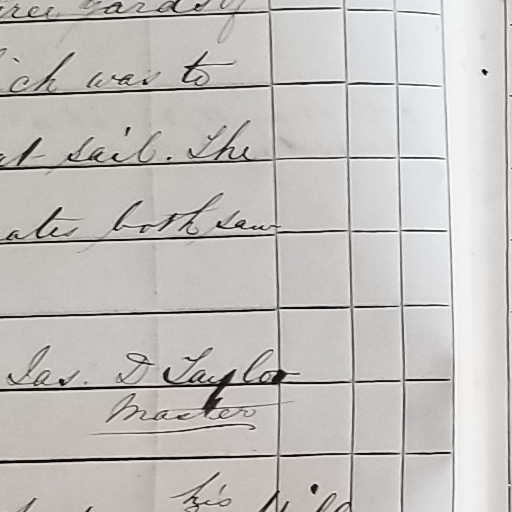 ree yards of
ich was to
at sail. The
ates both saw
Jas. D Taylor
Master
his